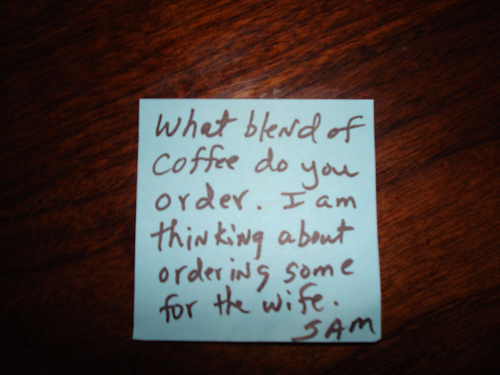 What blend of
coffee do you
order. I am
thinking about
ordering some
for the wife.
SAM